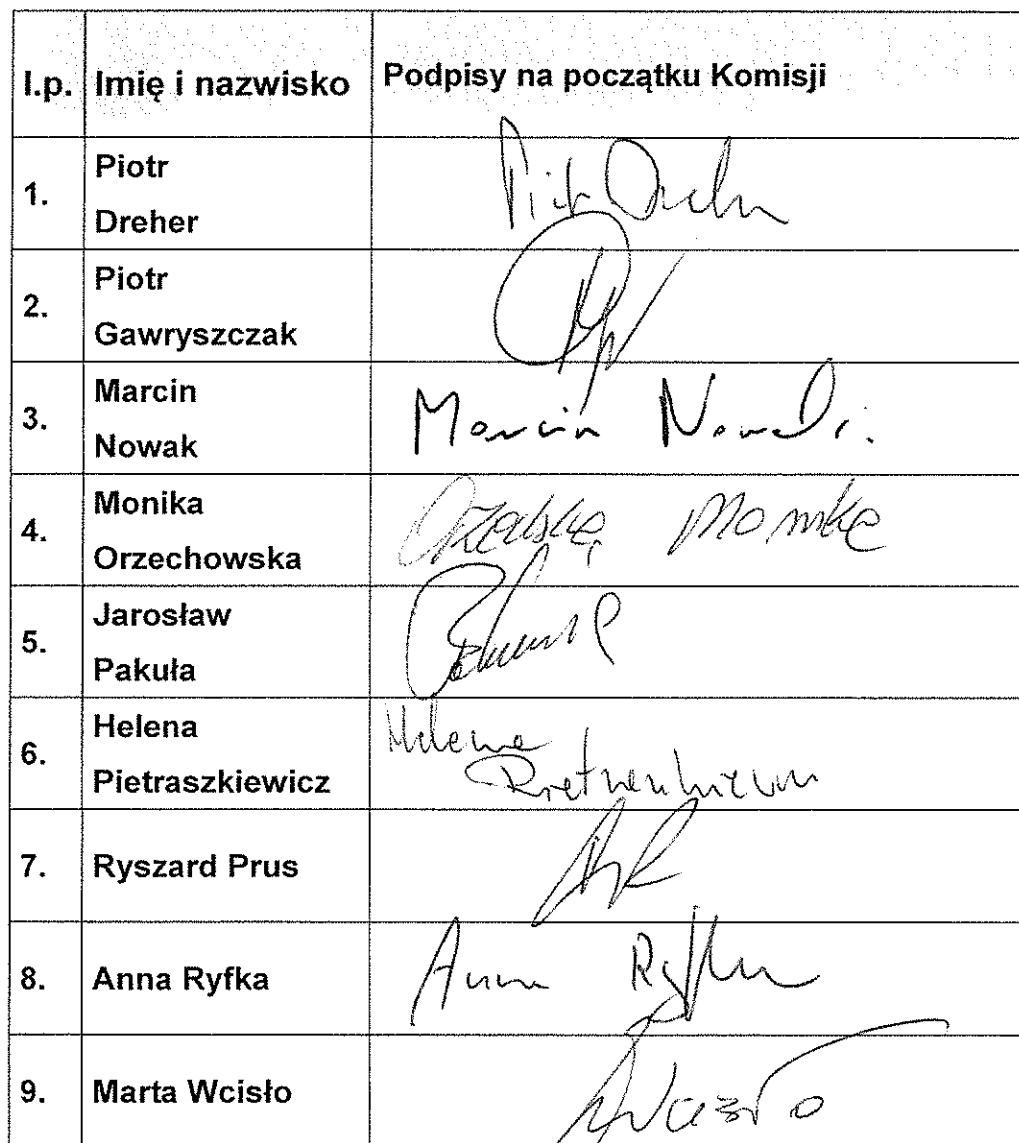 l.p. Imię i nazwisko Podpisy na początku Komisji
1. Piotr
Dreher
Piotr Dreher
2. Piotr
Gawryszczak
3. Marcin
Nowak
Marcin Nowak
4. Monika
Orzechowska
Monika
5. Jarosław
Pakuła
6. Helena
Pietraszkiewicz
Helena
Pietraszkiewicz
7. Ryszard Prus
8. Anna Ryfka
Anna Ryfka
9. Marta Wcisło
Wcisło